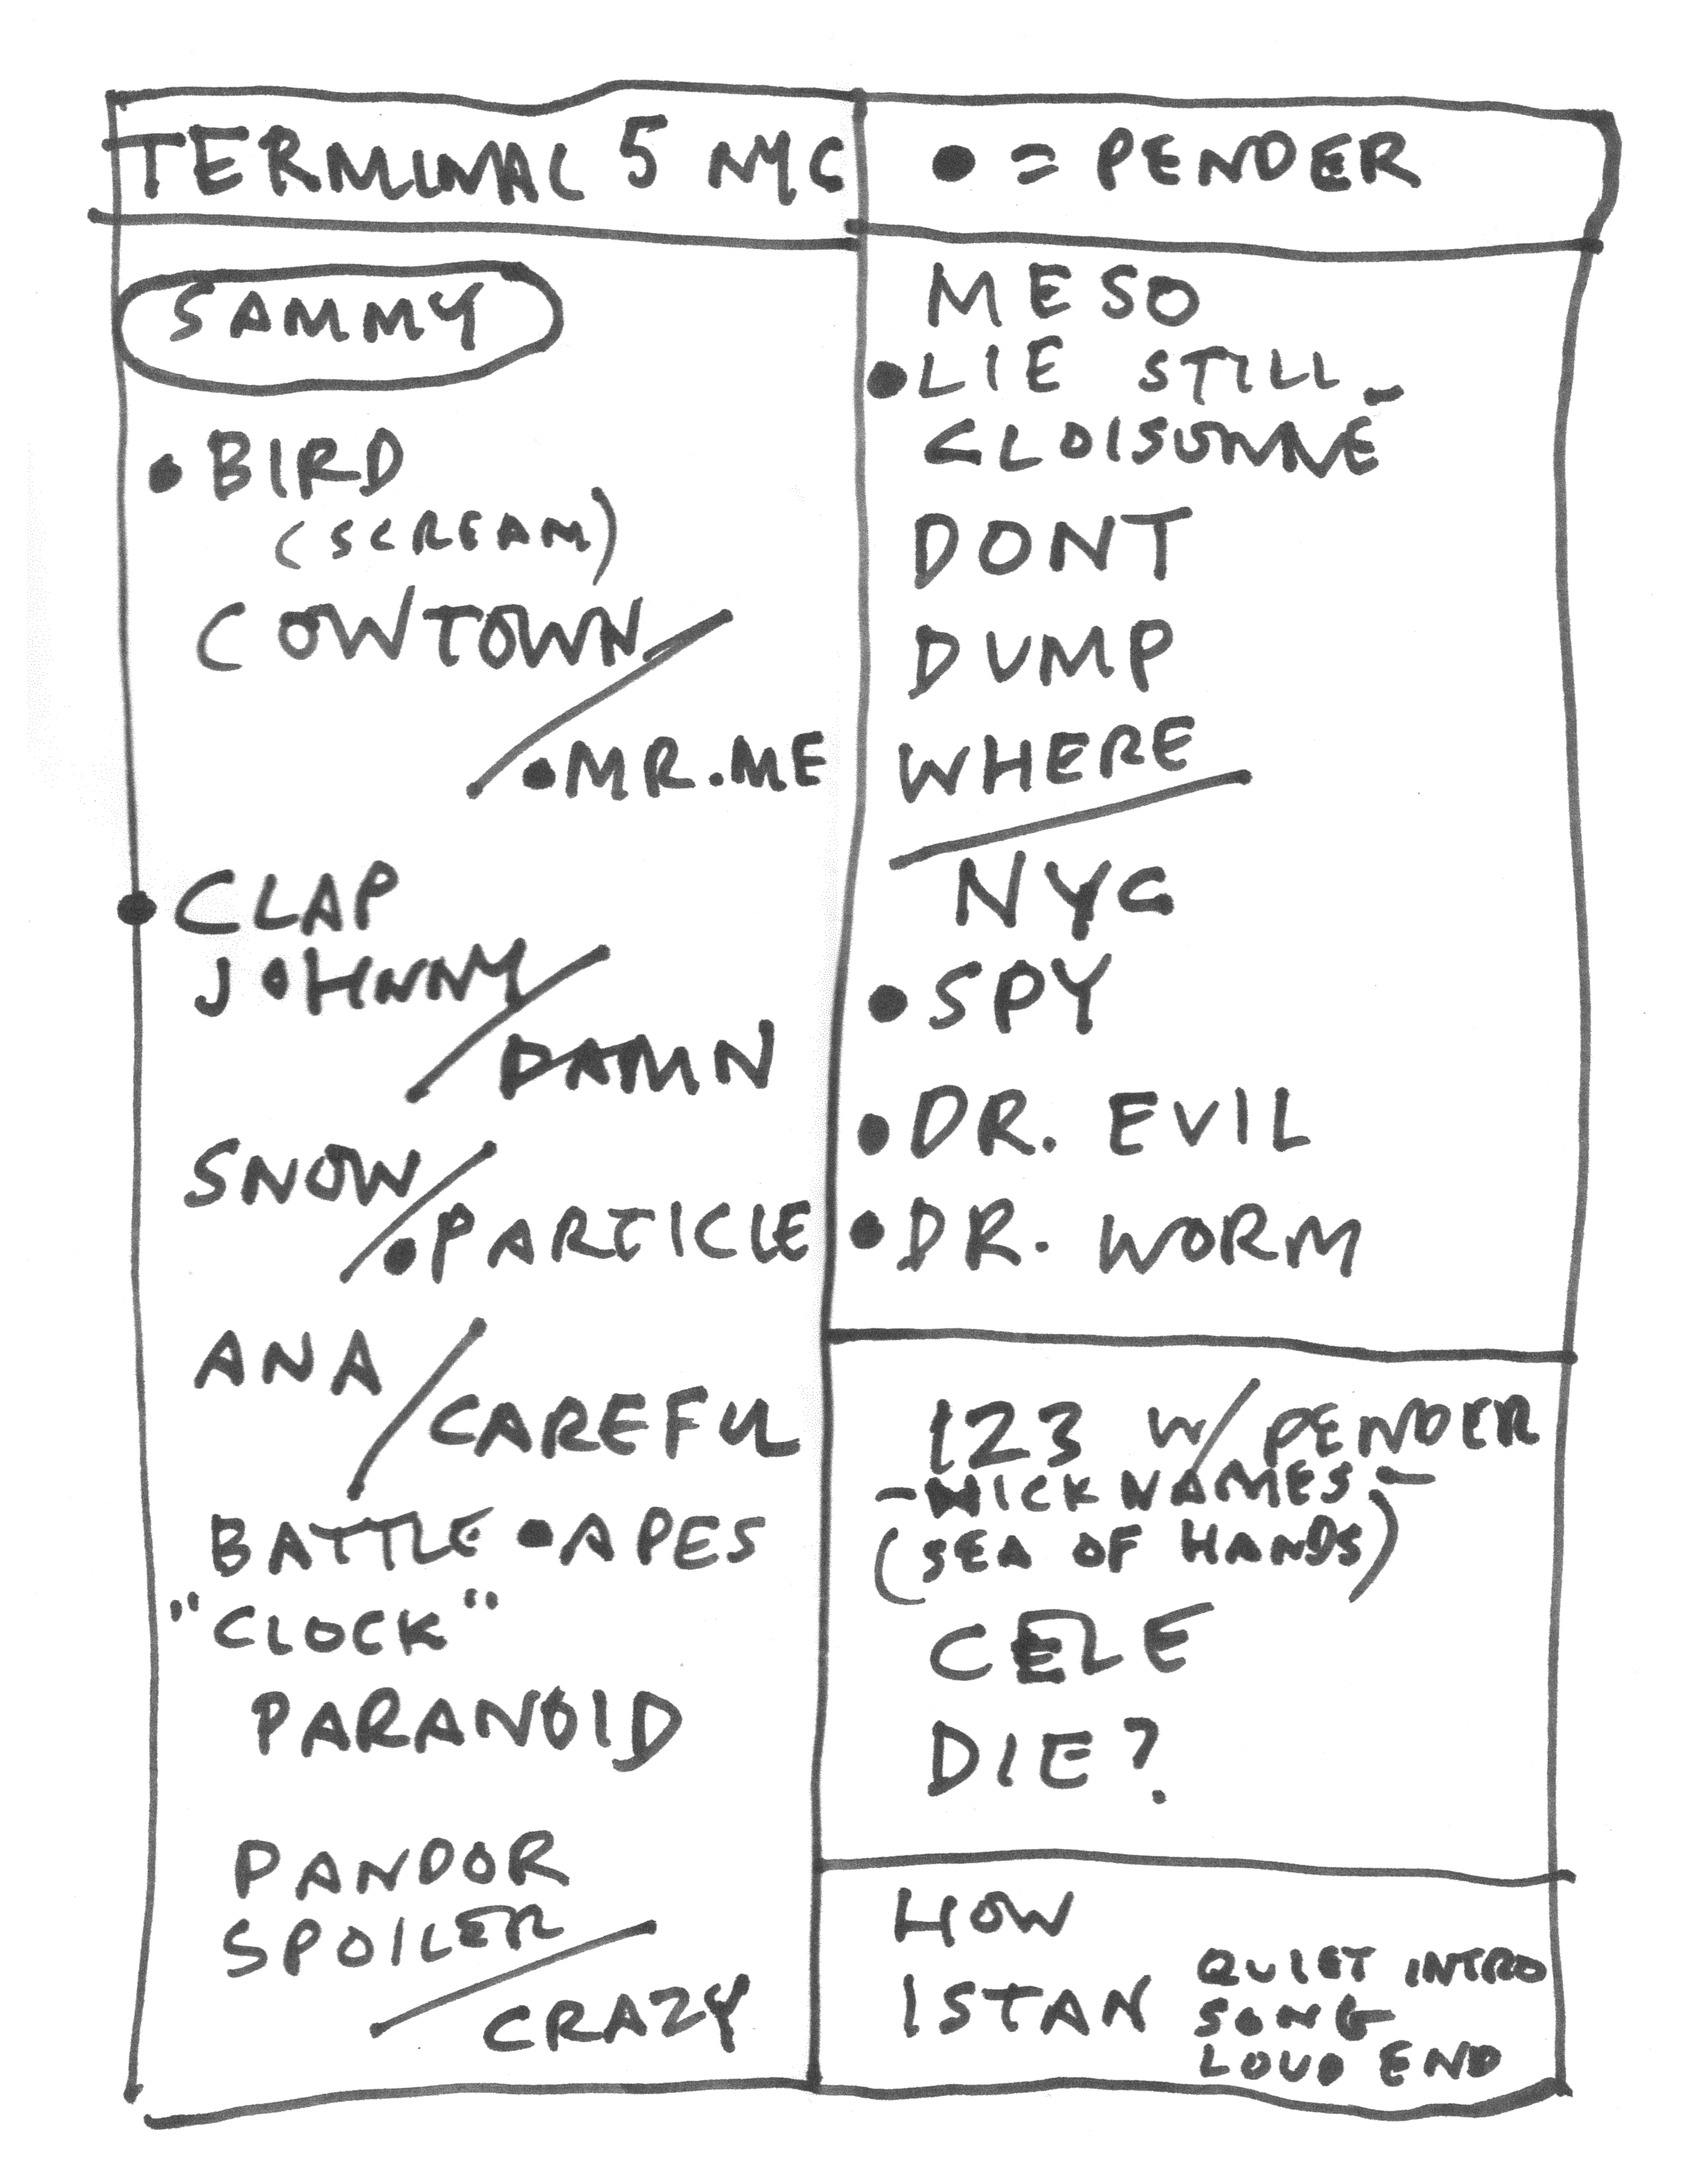 TERMINAL 5 NYC
SAMMY
• BIRD
(SCREAM)
COWTOWN /
• MR. ME
• CLAP
JOHNNY /
DAMN
SNOW /
• PARTICLE
ANA /
CAREFUL
BATTLE • APES
"CLOCK"
PARANOID
PANDOR
SPOILER /
CRAZY
• = PENDER
MESO
• LIE STILL
CLOISONNÉ
DONT
DUMP
WHERE /
NYC
• SPY
• DR. EVIL
• DR. WORM
123 W/ PENDER
- NICKNAMES -
(SEA OF HANDS)
CELE
DIE?
HOW
ISTAN QUIET INTRO
SONG
LOUD END